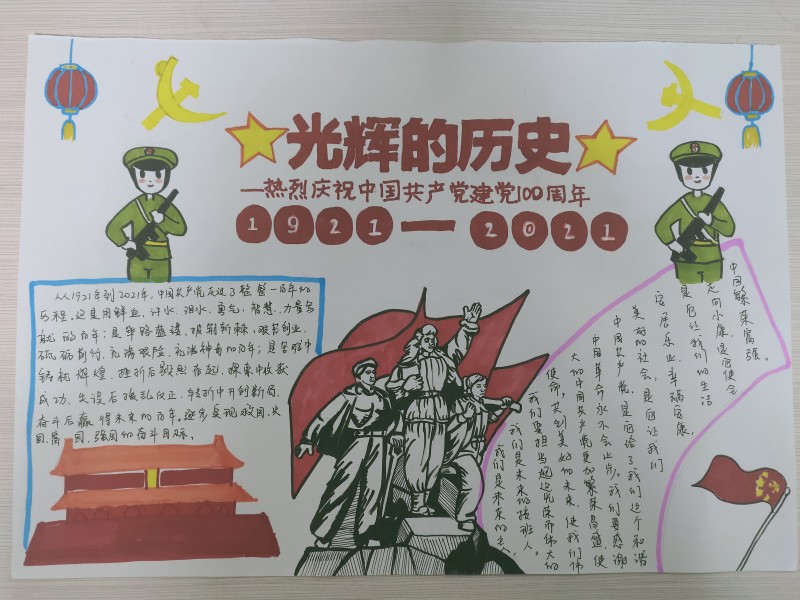 光辉的历史
—热烈庆祝中国共产党建党100周年
1921—2021
从1921年到2021年,中国共产党走过了整整一百年的
历程。这是用鲜血、汗水、泪水、勇气、智慧、力量写
就的百年;是筚路蓝缕、披荆斩棘、艰苦创业、
砥砺前行、充满艰险、充满神奇的百年;是苦难中
铸就辉煌、挫折后毅然奋起、探索中收获
成功、失误后拨乱反正、转折中开创新局、
奋斗后赢得未来的百年。逐步实现救国、兴
国、富国、强国的奋斗目标。
中国繁荣富强。
走向小康,是您使
是您让我们的生活
安居乐业,幸福安康,
美好的社会,是您让我们
中国共产党,是您给了我们这个和谐
中国革命永不会止步。我们要感谢
大的中国共产党更加繁荣昌盛,使
使命,共创美好的未来,使我们伟
我们要担当起这光荣而伟大的
我们是未来的接班人,
我们是未来的主人,